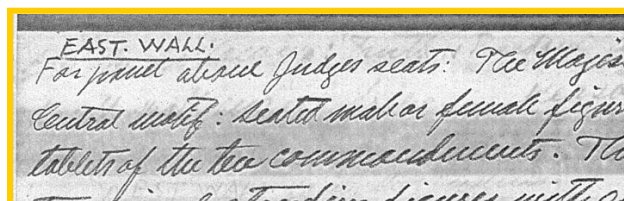 EAST. WALL.
For panel above Judges seats: The Majes
Central motif: Seated male or female figur
tablets of the ten commandments. Th
standing figures with